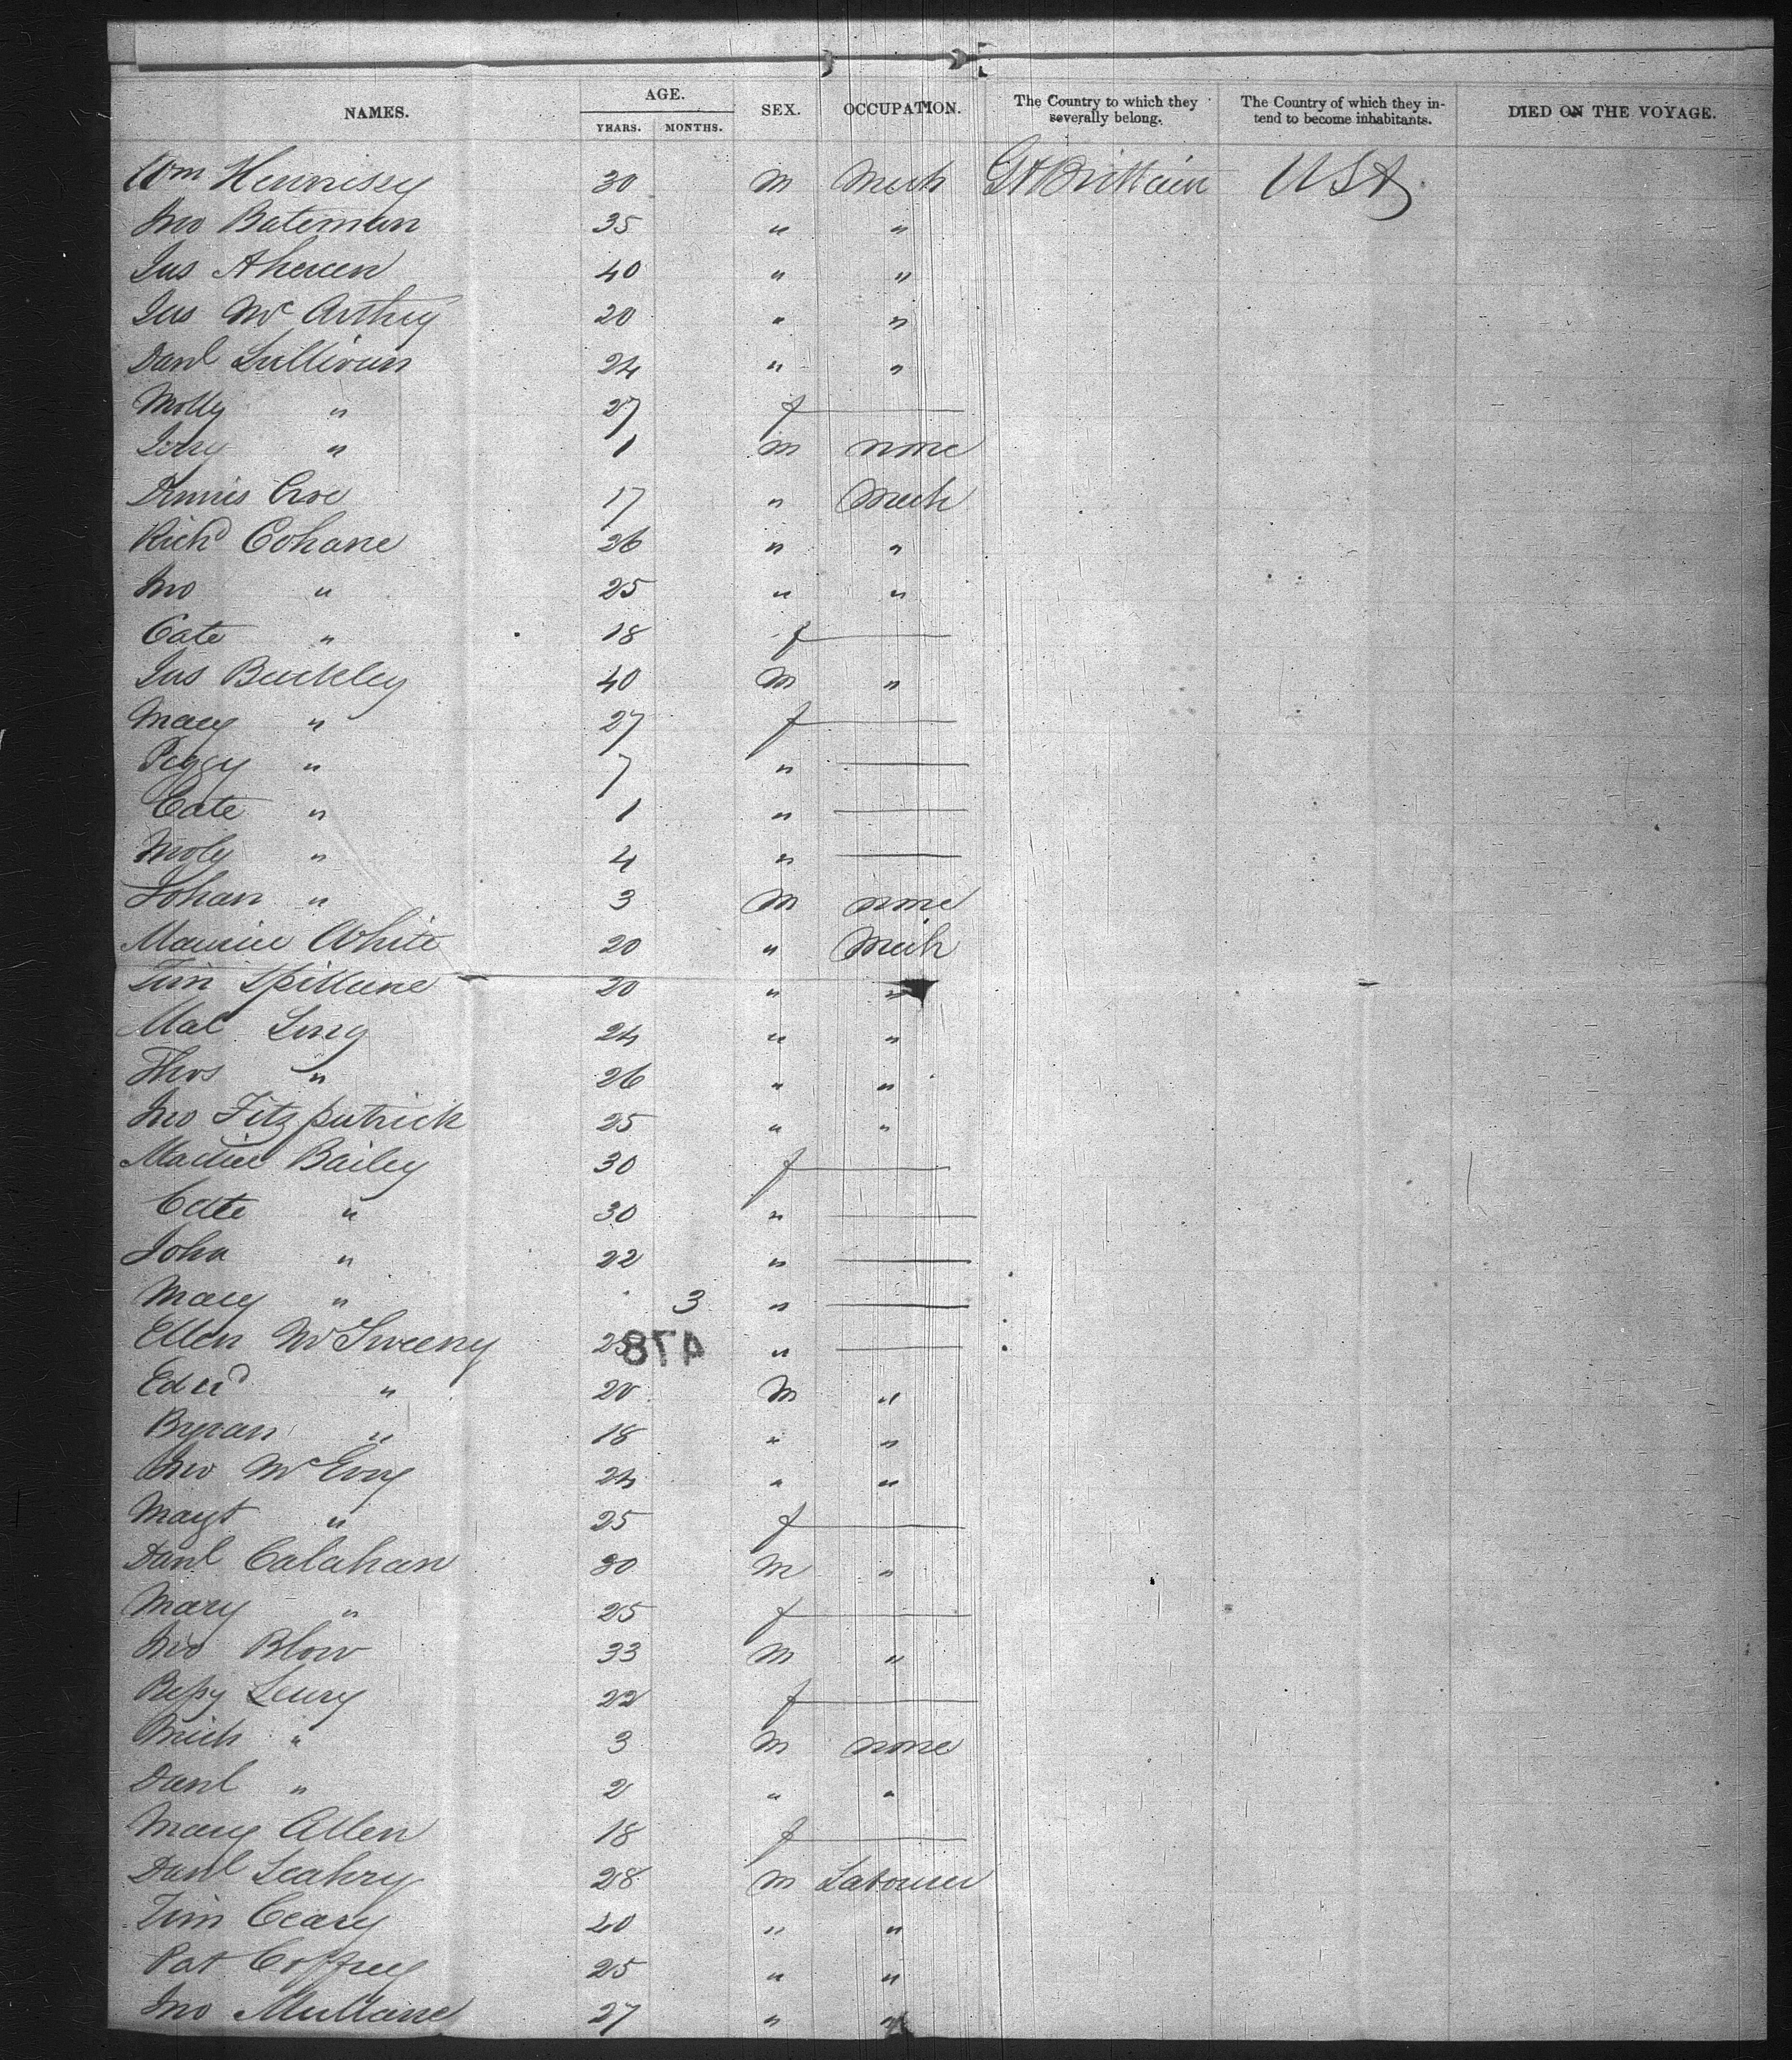 NAMES. AGE. YEARS. MONTHS. SEX. OCCUPATION. The Country to which they severally belong. The Country of which they intend to become inhabitants. DIED ON THE VOYAGE.
Wm Hennissy 30 m Mech Gt Brittain USA
Jno Bateman 35 " "
Jas Aheren 40 " "
Jas McArthy 20 " "
Danl Sullivan 24 " "
Molly " 27 f —
Jerry " 1 m none
Dennis Croe 17 " Mech
Richd Cohane 26 " "
Jno " 25 " "
Cate " 18 f —
Jas Buckley 40 m "
Mary " 27 f —
Peggy " 7 " —
Cate " 1 " —
Moly " 4 " —
Johan " 3 m none
Maurice White 20 " Mech
Tim Spillane 20 " "
Mal Ling 24 " "
Thos " 26 " "
Jno Fitzpatrick 25 " "
Bailey 30 f —
Cate " 30 " —
John " 22 " —
Mary " 3 " —
Ellen McSweeny 25 " —
478
Edwd " 20 m "
Byran " 18 " "
Jno McEvoy 24 " "
Magt " 25 f —
Danl Calahan 30 m "
Mary " 25 f —
Jno Blow 33 m "
Betsy Leary 22 f —
Mich " 3 m none
Danl " 2 " "
Mary Allen 18 f —
Danl Leahry 28 m Labourer
Tim Ceary 40 " "
Pat Coffrey 25 " "
Jno Mullane 27 " "